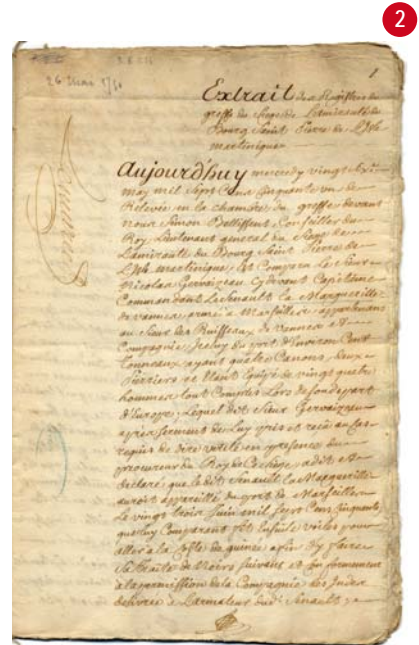 2
26 mai 17
1
Extrait des Registres du
greffe du Siege de Lamirauté du
Bourg Saint Pierre de L'Isle
martinique
Aujourd'huy mercredy vingt Six
may mil Sept Cens Cinquante un de
Relevée en la chambre du greffe devant
nous Simon Conseiller du
Roy, Lieutenant general du Siege de
Lamirauté du Bourg Saint Pierre de
L'Isle martinique, Est Comparu Le Sieur
Nicolas Gervaizeau Cydevant Capitaine
Commandant Le Senault La Margueritte
de vannes, armé a Marseille, appartenant
au Sieur des Ruisseaux de vannes et
Compagnie, Jceluy du port d'Environ Cent
Tonneaux ayant quatre Canons, deux
Pierriers et Etant Equipé de vingt quatre
hommes tout Comptés Lors de Son depart
d'Europe, Lequel dit Sieur Gervaizeau
apres Serment de Luy pris et recu au Cas
requis de dire verité en presence du
procureur du Roy de Ce Siege, a dit et
declaré que le dit Senault La Margueritte
auroit appareillé du port de Marseille
Le vingt trois Juin mil Sept Cens Cinquante
que Luy Comparant fit Ensuite voiles pour
aller a la Coste de guinée afin d'y faire
Sa traite de Noirs Suivant et Conformement
a la permission de la Compagnie des Indes
delivrée a Larmateur dudit Senault,